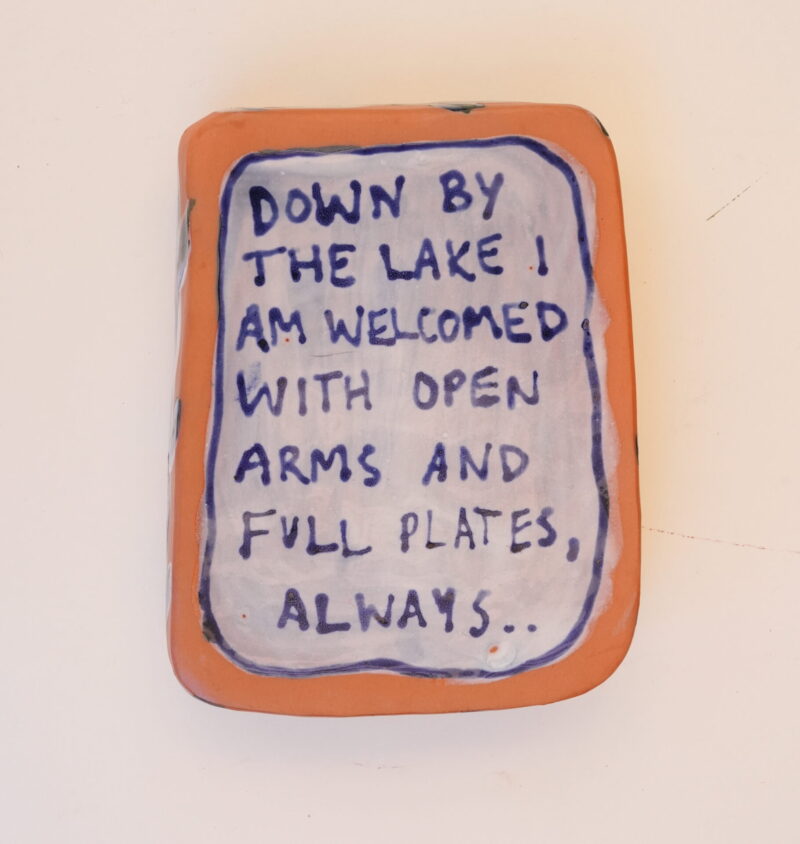 DOWN BY
THE LAKE I
AM WELCOMED
WITH OPEN
ARMS AND
FULL PLATES,
ALWAYS..